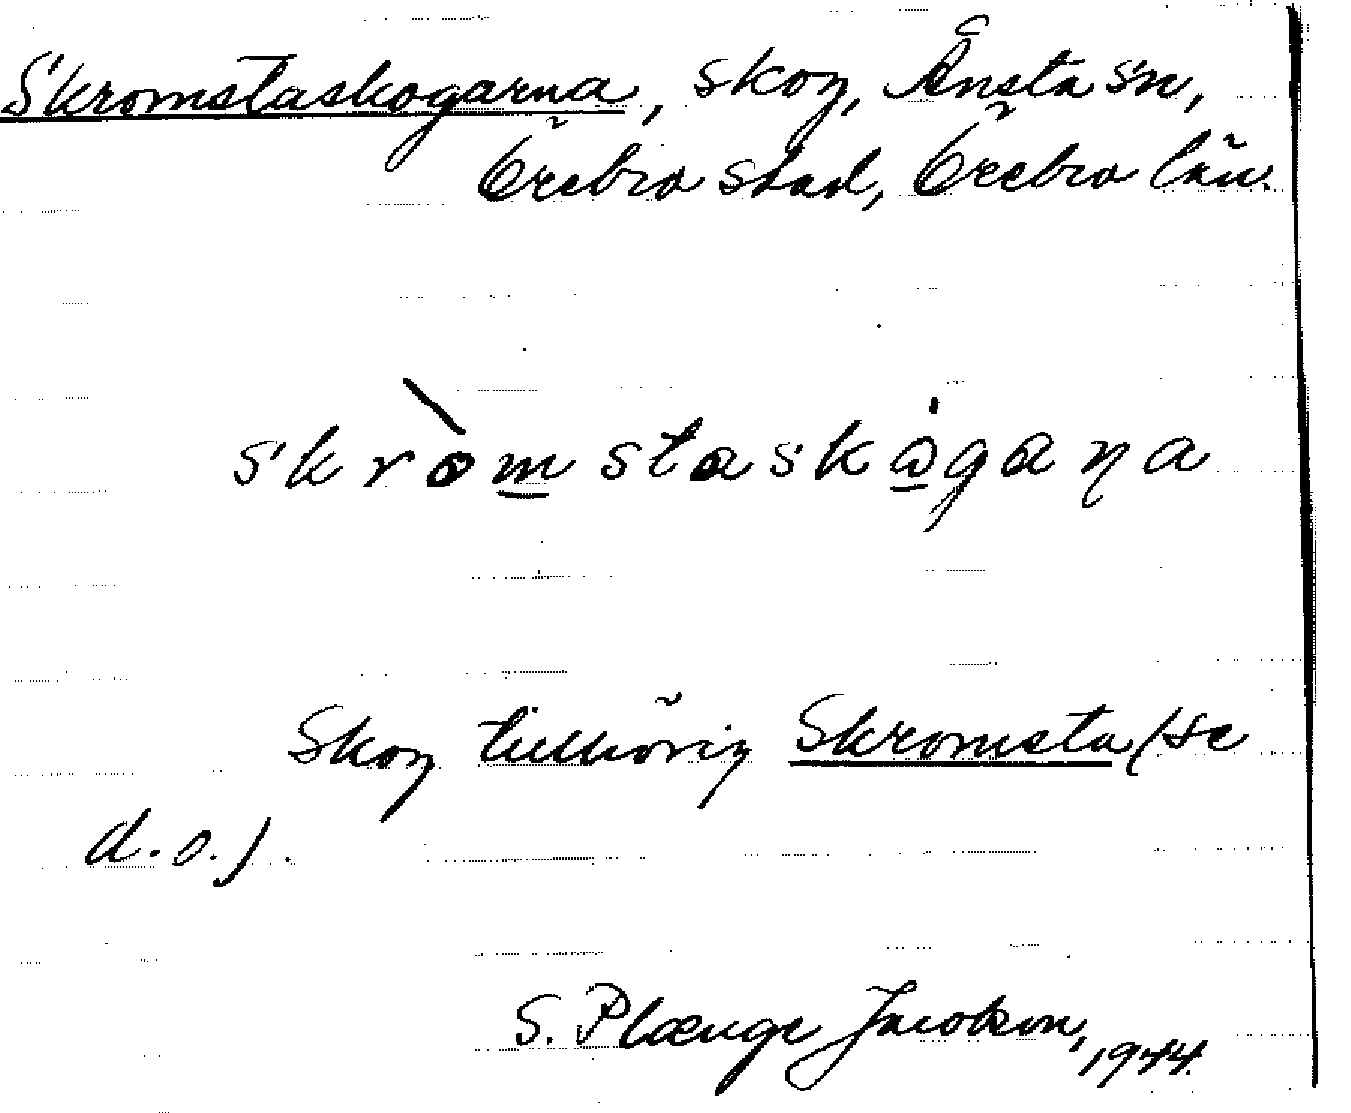 Skromstaskogarna, skog, Ånsta sn,
Örebro stad, Örebro län.
skròmstaskògaŋa
Skog tillhörig Skromsta (se
d.o.).
S. Plænge Jacobson,
1944.